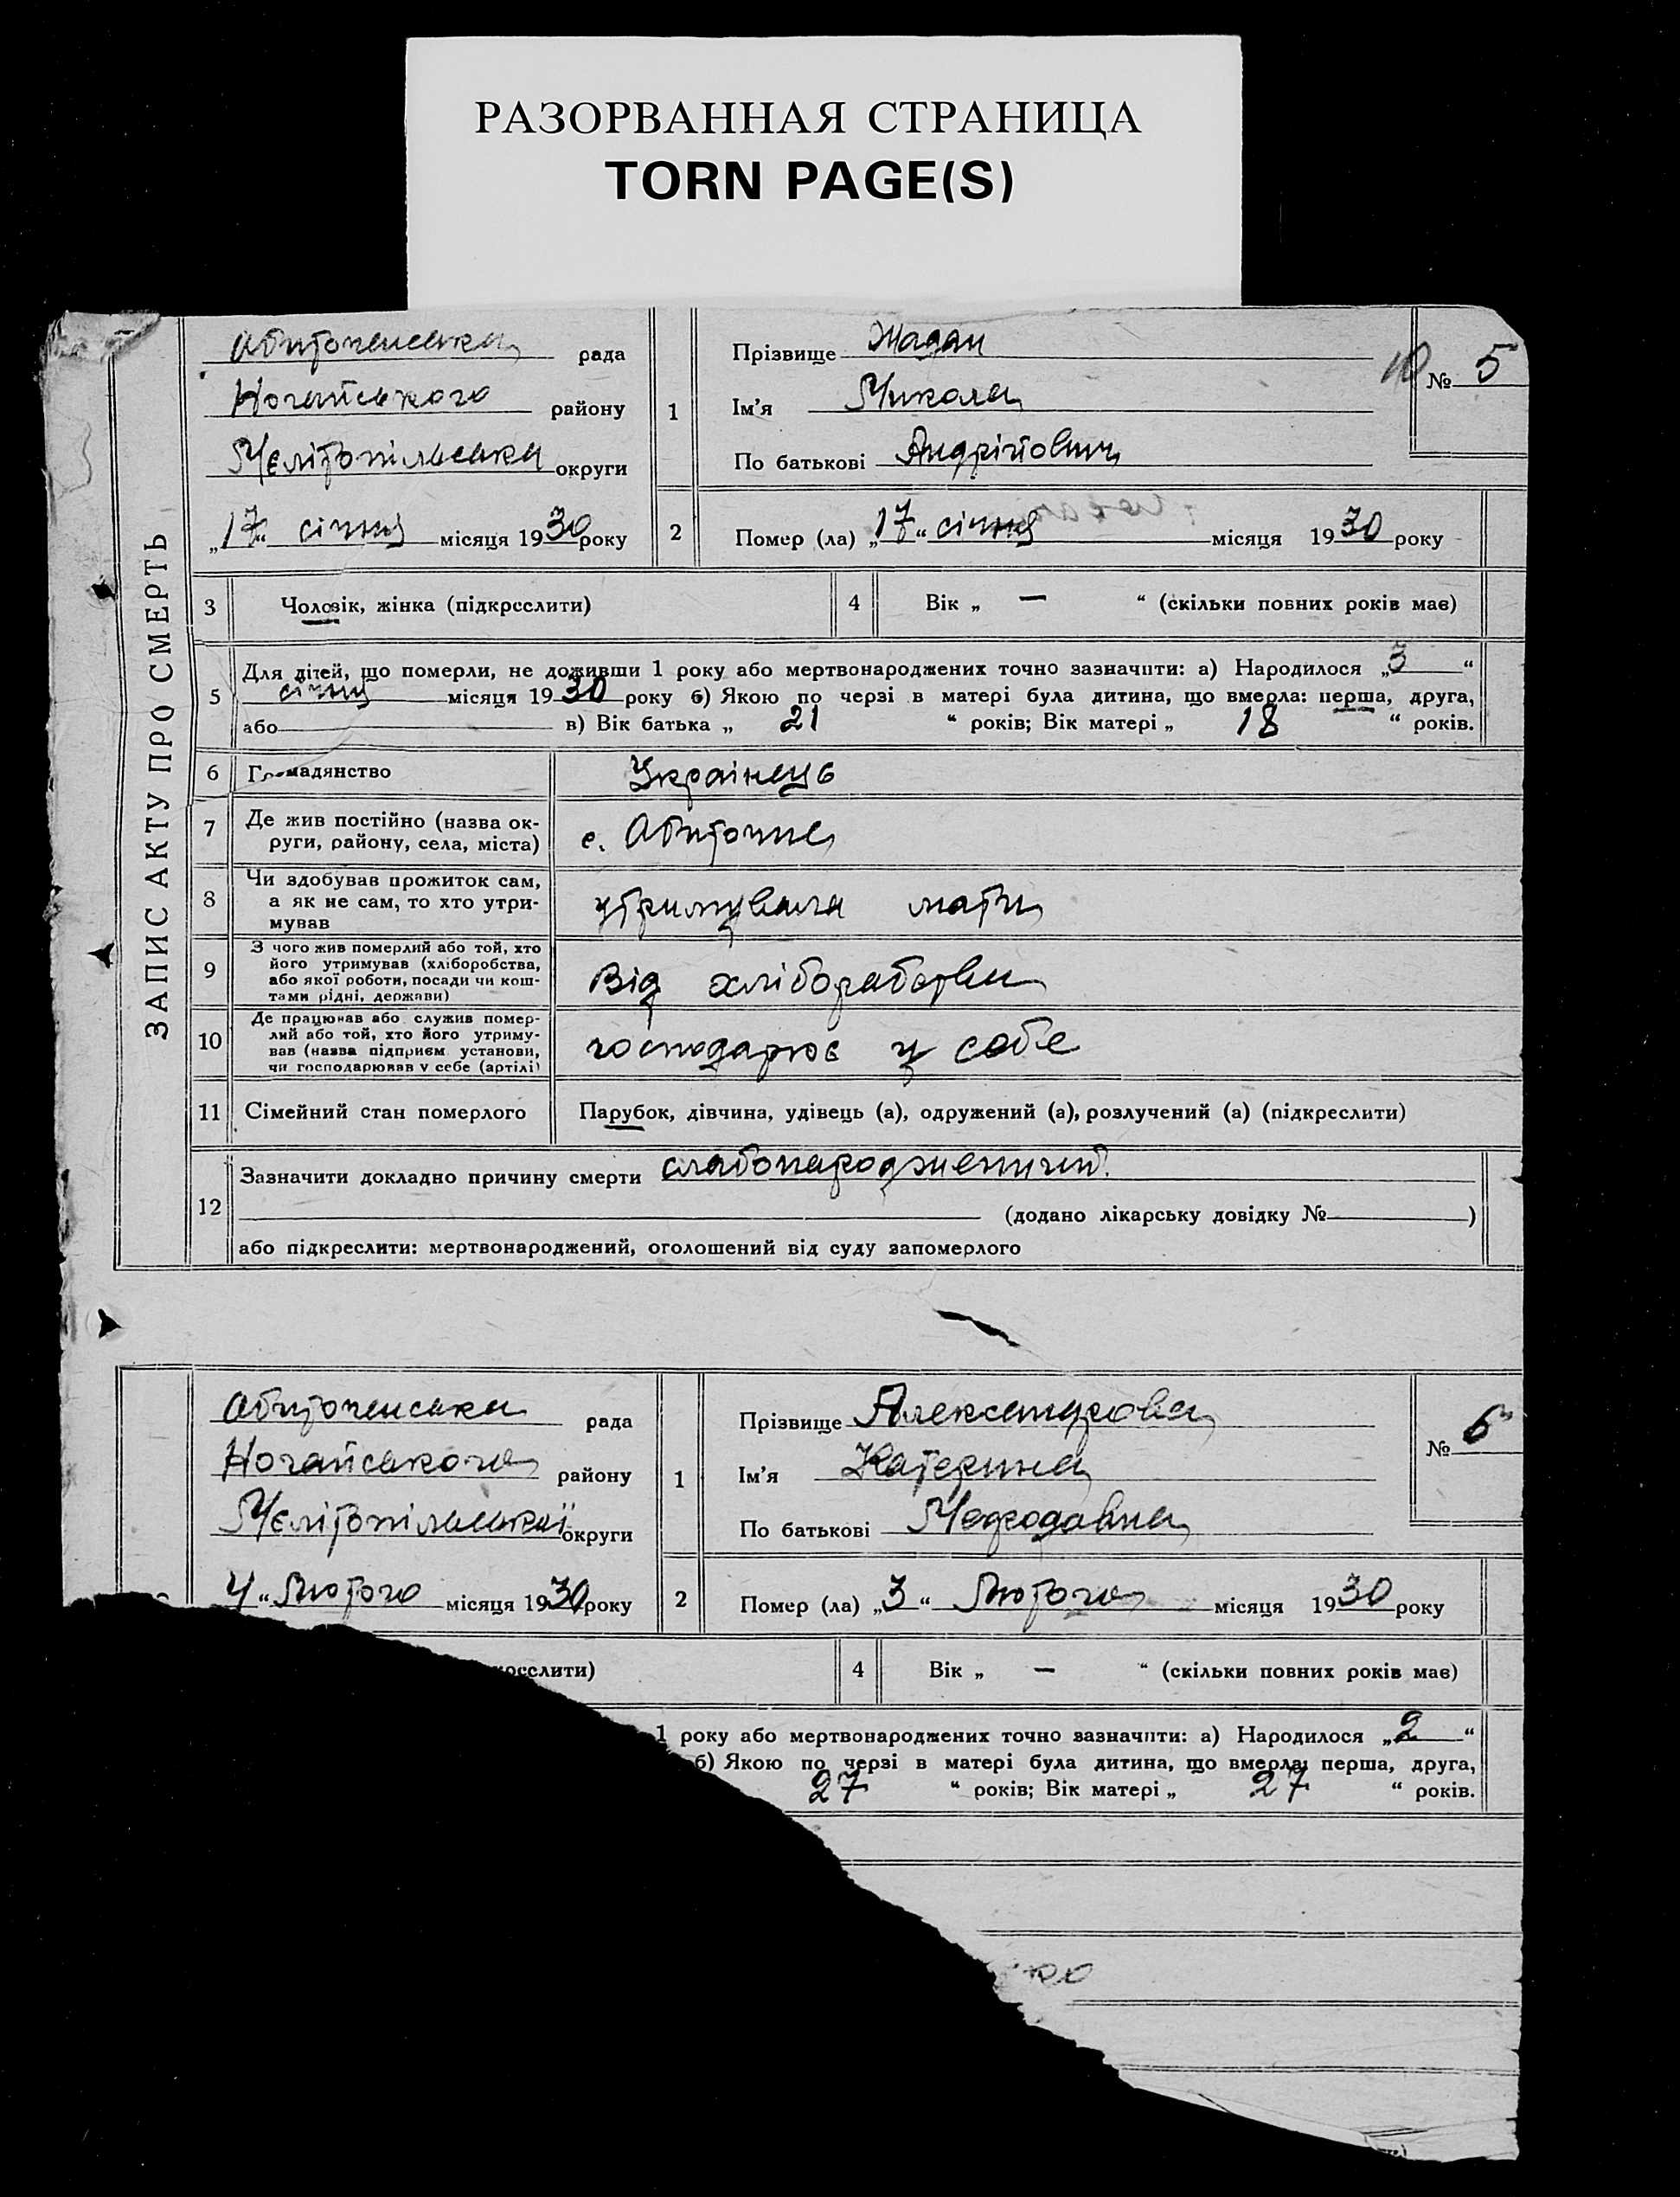 РАЗОРВАННАЯ СТРАНИЦА
TORN PAGE(S)
ЗАПИС АКТУ ПРО СМЕРТЬ
Абиточенська рада
Ногайського району
Мелітопільська округи
„17“ січня місяця 1930 року
1
Прізвище Жадан
Ім'я Микола
По батькові Андрійович
10 № 5
2
Помер (ла) „17“ січня місяця 1930 року
3 Чоловік, жінка (підкреслити)
4 Вік „ — “ (скільки повних років має)
5 Для дітей, що померли, не доживши 1 року або мертвонароджених точно зазначити: а) Народилося „3“
січня місяця 1930 року б) Якою по черзі в матері була дитина, що вмерла: перша, друга,
або в) Вік батька „ 21 “ років; Вік матері „ 18 “ років.
6 Громадянство Українець
7 Де жив постійно (назва ок-
руги, району, села, міста) с. Абиточне
8 Чи здобував прожиток сам,
а як не сам, то хто утри-
мував утримувала мати
9 З чого жив померлий або той, хто
його утримував (хліборобства,
або якої роботи, посади чи кош-
тами рідні, держави) Від хліборабства
10 Де працював або служив помер-
лий або той, хто його утриму-
вав (назва підприєм. установи,
чи господарював у себе (артілі) господарює у себе
11 Сімейний стан померлого Парубок, дівчина, удівець (а), одружений (а), розлучений (а) (підкреслити)
12 Зазначити докладно причину смерти слабонароджений
(додано лікарську довідку № )
або підкреслити: мертвонароджений, оголошений від суду запомерлого
Абиточенська рада
Ногайського району
Мелітопільської округи
4“ Лютого місяця 1930 року
1
Прізвище Александрова
Ім'я Катерина
По батькові
№ 6
2
Помер (ла) „3“ Лютого місяця 1930 року
кресслити)
4 Вік „ — “ (скільки повних років має)
1 року або мертвонароджених точно зазначити: а) Народилося „2“
б) Якою по черзі в матері була дитина, що вмерла: перша, друга,
27 “ років; Вік матері „ 27 “ років.